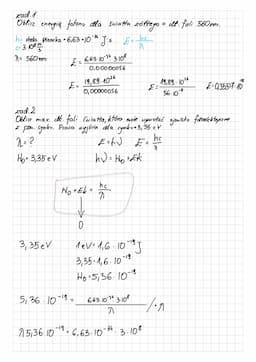 zad.1
Oblicz energię fotonu dla światła żółtego o dł. fali 560nm.
h= stała Plancka = 6,63·10⁻³⁴ J·s E = hc/λ
c= 3·10⁸ m/s
λ = 560nm E = 6,63·10⁻³⁴·3·10⁸ / 0,00000056
E = 19,89·10⁻²⁶ / 0,00000056 E = 19,89·10⁻²⁶ / 56·10⁻⁸ E = 0,35517·10
zad.2
Oblicz max. dł. fali światła, które może wywołać zjawisko fotoelektryczne
z pow. cynku. Praca wyjścia dla cynku = 3,35 eV
λ = ? E = hν E = hc/λ
W₀ = 3,35 eV hν = W₀ + Ek
W₀ + Ek = hc/λ
0
3,35 eV 1 eV = 1,6 · 10⁻¹⁹ J
3,35 · 1,6 · 10⁻¹⁹
W₀ = 5,36 · 10⁻¹⁹
5,36 · 10⁻¹⁹ = 6,63·10⁻³⁴·3·10⁸ / λ /·λ
λ 5,36·10⁻¹⁹ = 6,63·10⁻³⁴ · 3·10⁸